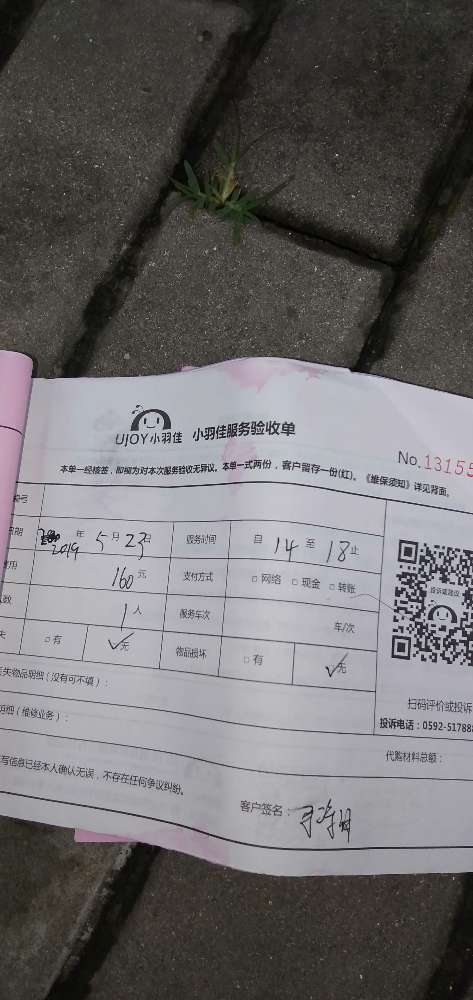 UJOY小羽佳 小羽佳服务验收单
No.13155
本单一经核签,即视为对本次服务验收无异议。本单一式两份,客户留存一份(红)。《维保须知》详见背面。
编号
日期 2019 年 5 月 23 日 服务时间 自 14 至 18 止
费用 160 元 支付方式 □网络 □现金 □转账
人数 1 人 服务车次 车/次
失 □有 ✓无 物品损坏 □有 ✓无
投诉或建议
扫码评价或投诉
投诉电话:0592-51788
丢失物品明细(没有可不填):
明细(维修业务):
代购材料总额:
写信息已经本人确认无误,不存在任何争议纠纷。
客户签名: